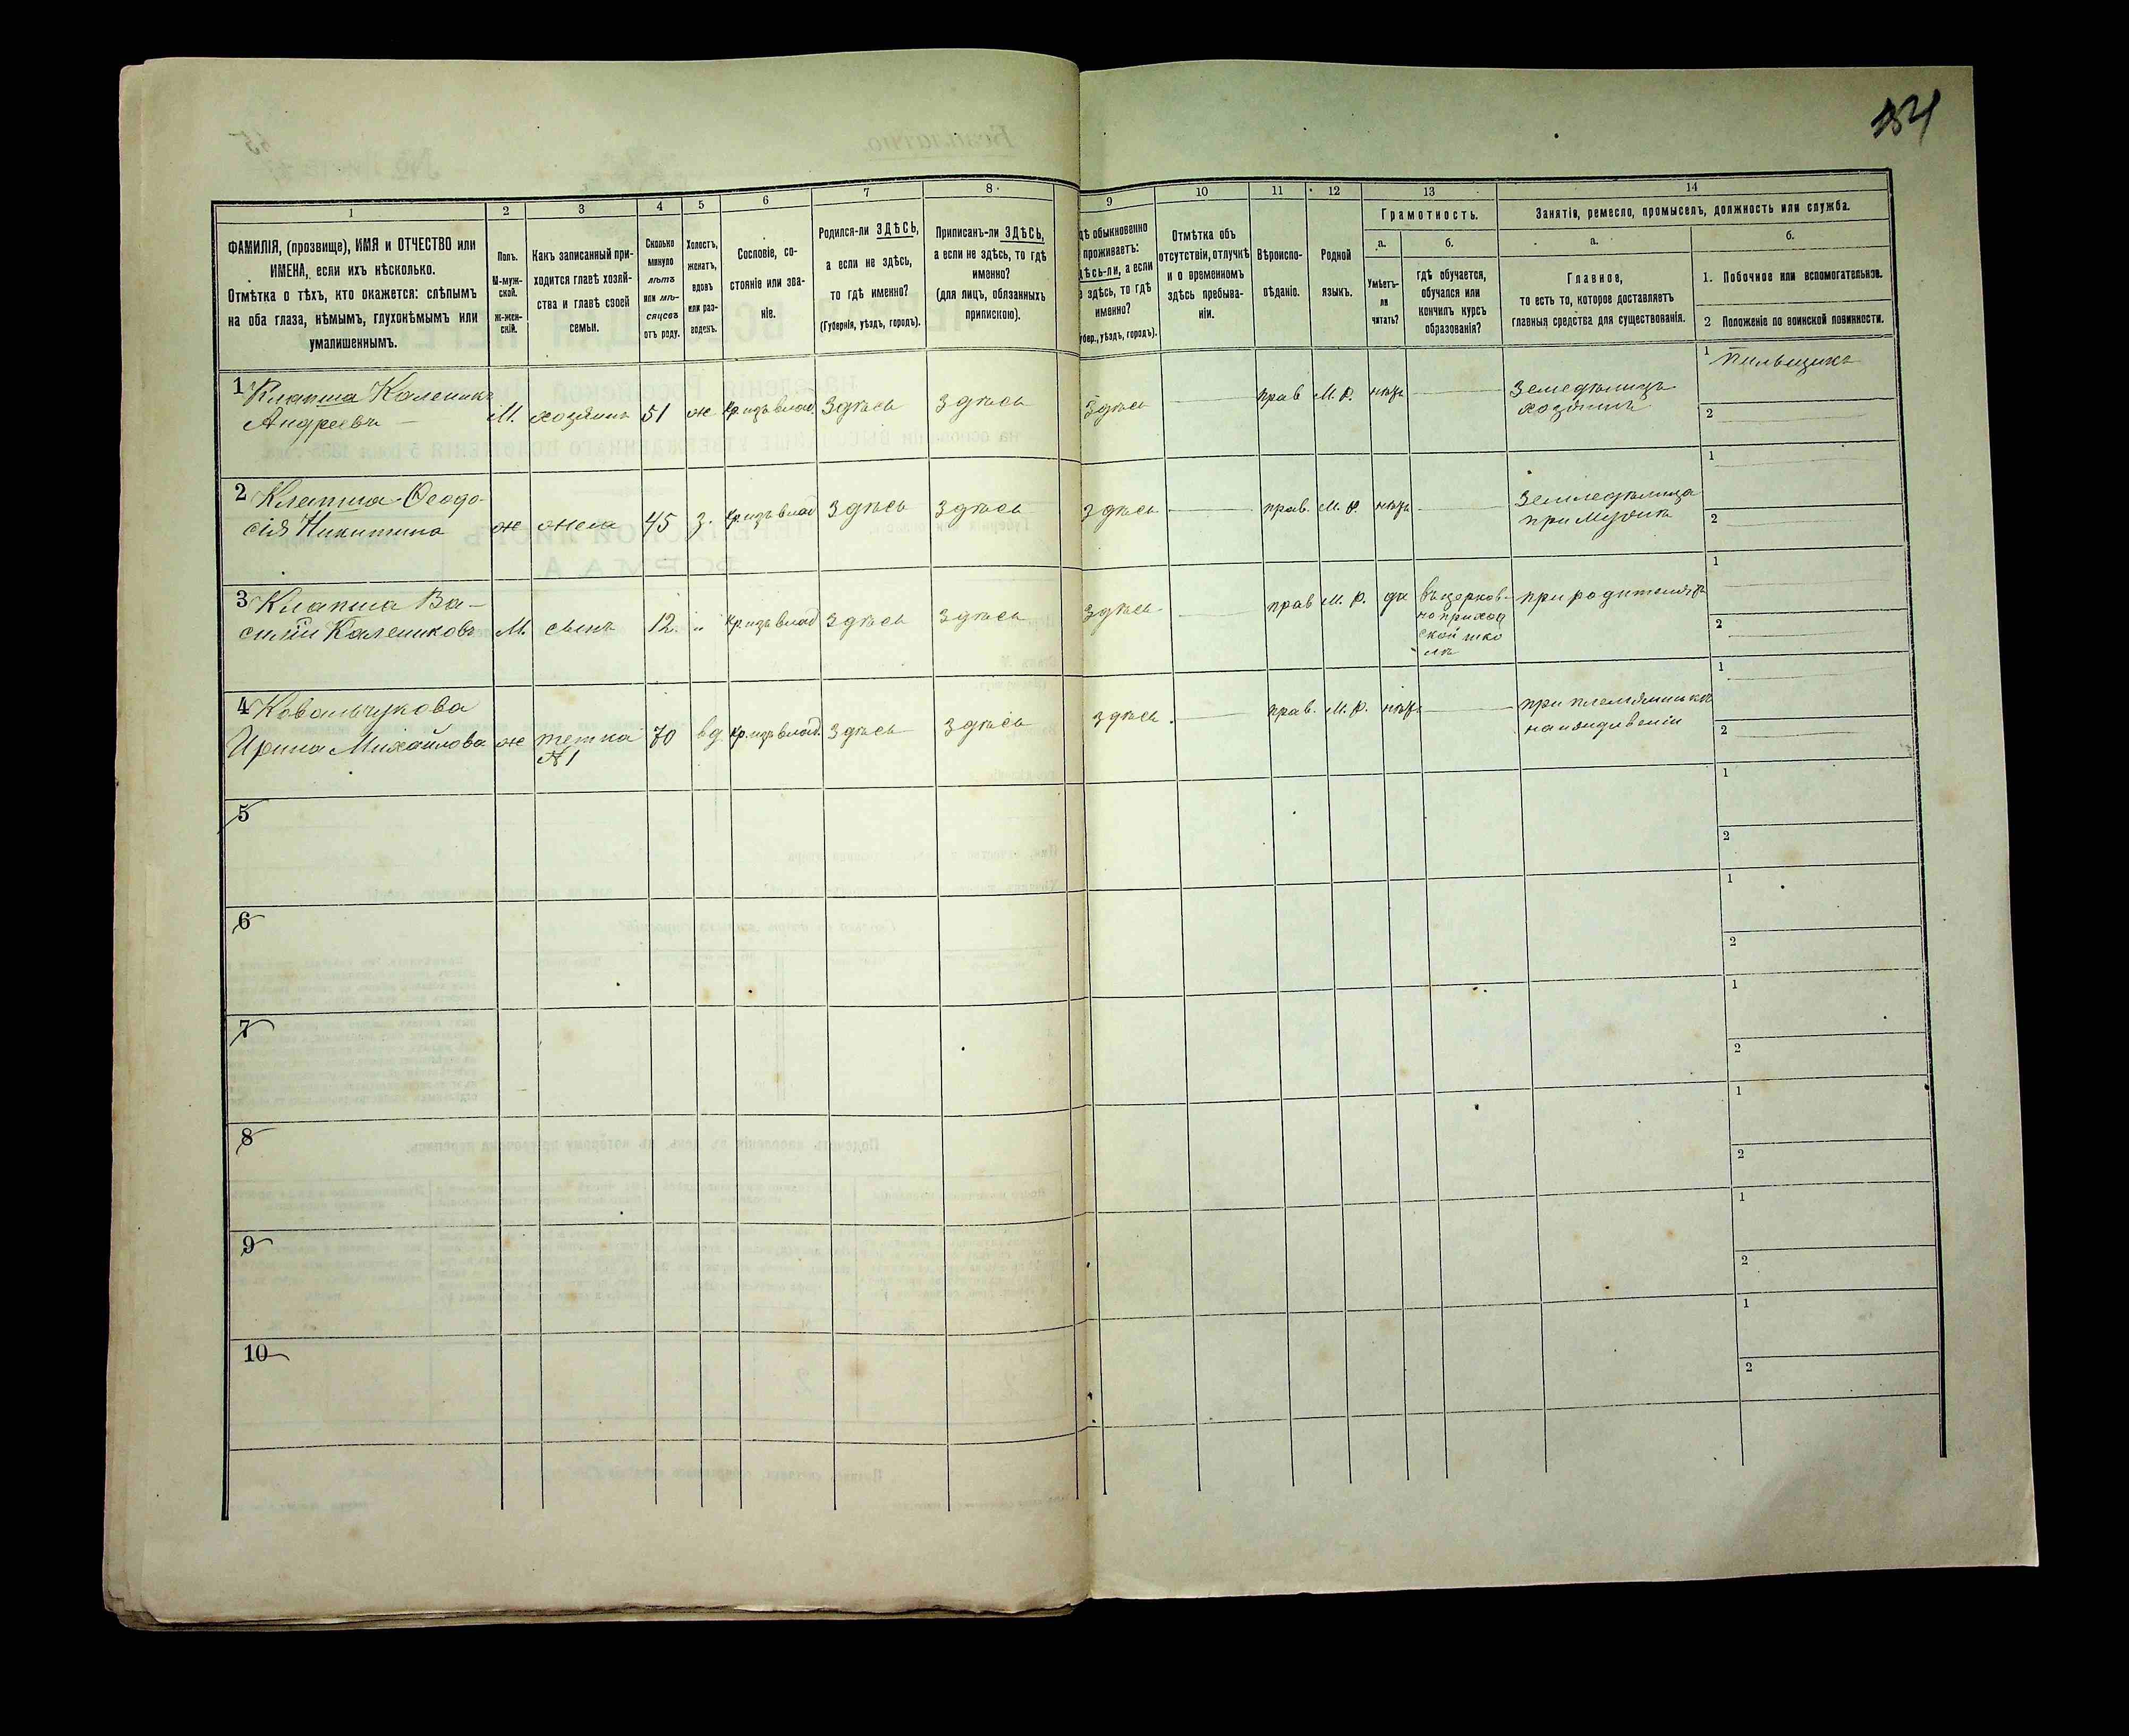 154
1
2
3
4
5
6
7
8
9
10
11
12
13
14
ФАМИЛІЯ, (прозвище), ИМЯ и ОТЧЕСТВО или
ИМЕНА, если ихъ нѣсколько.
Отмѣтка о тѣхъ, кто окажется: слѣпымъ
на оба глаза, нѣмымъ, глухонѣмымъ или
умалишеннымъ.
Полъ.
М-муж-
ской.
Ж-жен-
скій.
Какъ записанный при-
ходится главѣ хозяй-
ства и главѣ своей
семьи.
Сколько
минуло
лѣтъ
или мѣ-
сяцевъ
отъ роду.
Холостъ,
женатъ,
вдовъ
или раз-
веденъ.
Сословіе, со-
стояніе или зва-
ніе.
Родился-ли ЗДѢСЬ,
а если не здѣсь,
то гдѣ именно?
(Губернія, уѣздъ, городъ).
Приписанъ-ли ЗДѢСЬ,
а если не здѣсь, то гдѣ
именно?
(для лицъ, обязанныхъ
припискою).
дѣ обыкновенно
проживаетъ:
дѣсь-ли, а если
здѣсь, то гдѣ
именно?
убер., уѣздъ, городъ).
Отмѣтка объ
отсутствіи, отлучкѣ
и о временномъ
здѣсь пребыва-
ніи.
Вѣроиспо-
вѣданіе.
Родной
языкъ.
Грамотность.
а.
б.
Умѣетъ-
ли
читать?
гдѣ обучается,
обучался или
кончилъ курсъ
образованія?
Занятія, ремесло, промыселъ, должность или служба.
а.
б.
Главное,
то есть то, которое доставляетъ
главныя средства для существованія.
1. Побочное или вспомогательное.
2 Положеніе по воинской повинности.
1 Клапша Каленикъ
Андреевъ
М. хозяинъ 51 ж кр. изъ влад. Здѣсь Здѣсь Здѣсь прав М. Р. нѣтъ
Земледѣлецъ
хозяинъ
1 Пильщикъ
2
2 Клапша Ѳеодо-
сія Никитина
ж жена 45 з. кр. изъ влад Здѣсь Здѣсь Здѣсь прав. М. Р. нѣтъ
Земледѣлица
при мужѣ
1
2
3 Клапша Ва-
силій Калениковъ
М. сынъ 12. „ кр. изъ влад Здѣсь Здѣсь Здѣсь прав М. Р. да
въ церков-
но приход
ской шко
лѣ
при родителяхъ
1
2
4 Ковальчукова
Ирина Михайлова
ж тетка
№ 1
70 вд. кр. изъ влад. Здѣсь Здѣсь Здѣсь. прав. М. Р. нѣтъ
при племянникѣ
на иждивеніи
1
2
5
1
2
6
1
2
7
1
2
8
1
2
9
1
2
10
1
2